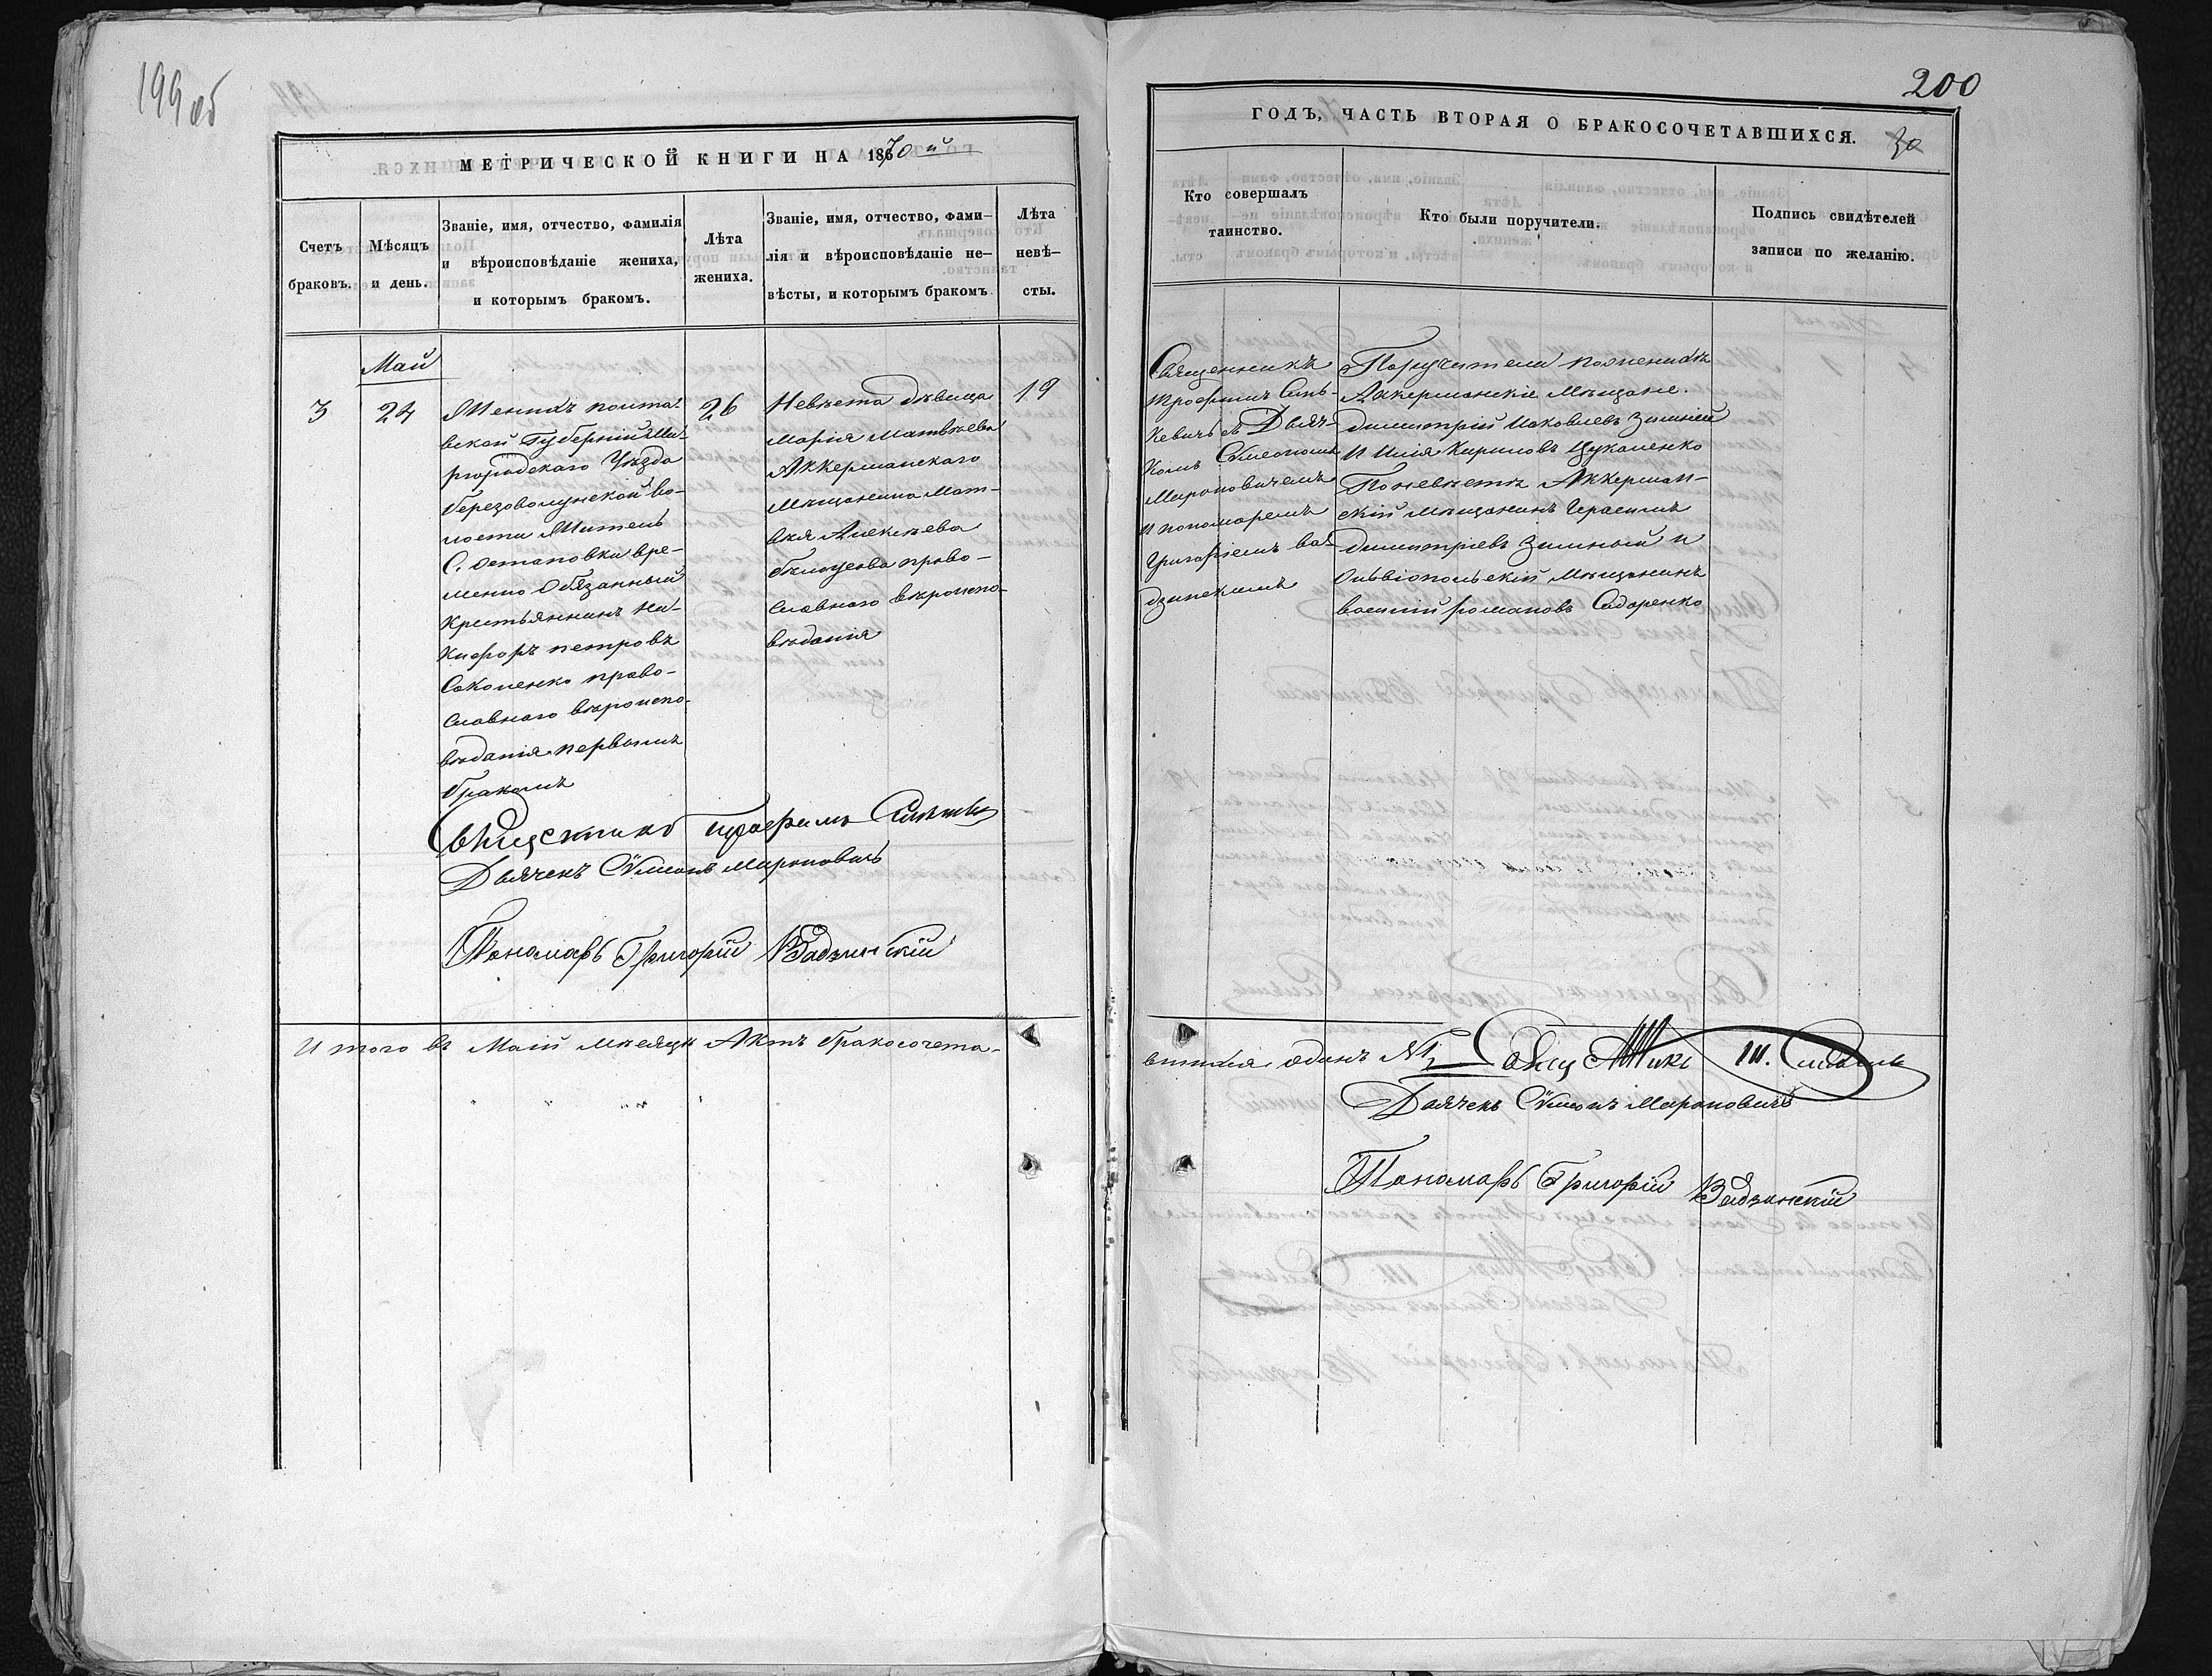 199 об
200
МЕТРИЧЕСКОЙ КНИГИ НА 1870й
Счетъ браковъ.
Мѣсяцъ и день.
Званіе, имя, отчество, фамилія
и вѣроисповѣданіе жениха,
и которымъ бракомъ.
Лѣта
жениха.
Званіе, имя, отчество, фами-
лія и вѣроисповѣданіе не-
вѣсты, и которымъ бракомъ
Лѣта
невѣ-
сты.
Май
3
24
Женихъ полта-
вской Губерніи Ми-
ргородскаго Уѣзда
березоволуцской во-
лости Житель
С. Остаповки вре-
менно Обязанный
Крестьянинъ Ни-
кифоръ петровъ
Соколенко право-
славнаго вѣроиспо-
вѣданія первымъ
бракомъ
26
Невѣста дѣвица
Марія Матвѣева
Аккерманскаго
Мѣщанина Мат-
вѣя Алексѣева
бѣлоусова право-
славнаго вѣроиспо-
вѣданія
19
Священникъ Трофимъ
Дьячекъ Сѵмеонъ Мироновичъ
Пономарь Григорій Вадзинскій
Итого въ Маіи мѣсяцѣ Актъ бракосочета-
ГОДЪ, ЧАСТЬ ВТОРАЯ О БРАКОСОЧЕТАВШИХСЯ.
30
Кто совершалъ
таинство.
Кто были поручители.
Подпись свидѣтелей
записи по желанію.
Священникъ
Трофимъ Синь-
кевичъ съ Дьяч-
комъ Сѵмеономъ
Мироновичемъ
и пономаремъ
Григоріемъ ва-
дзинскимъ
Поручители пожениху
Аккерманскіе Мѣщане.
димитрій Іаковлевъ Зимній
и Илія Кириловъ Цукаленко
Поневѣстѣ Аккерман-
скій мѣщанинъ Герасимъ
димитріевъ Зимный и
Ольвіопольскій Мѣщанинъ
василій романовъ Сидоренко
вшихся одинъ №1 Священникъ
Дьячекъ Сѵмеонъ Мироновичъ
Пономарь Григорій Вадзинскій